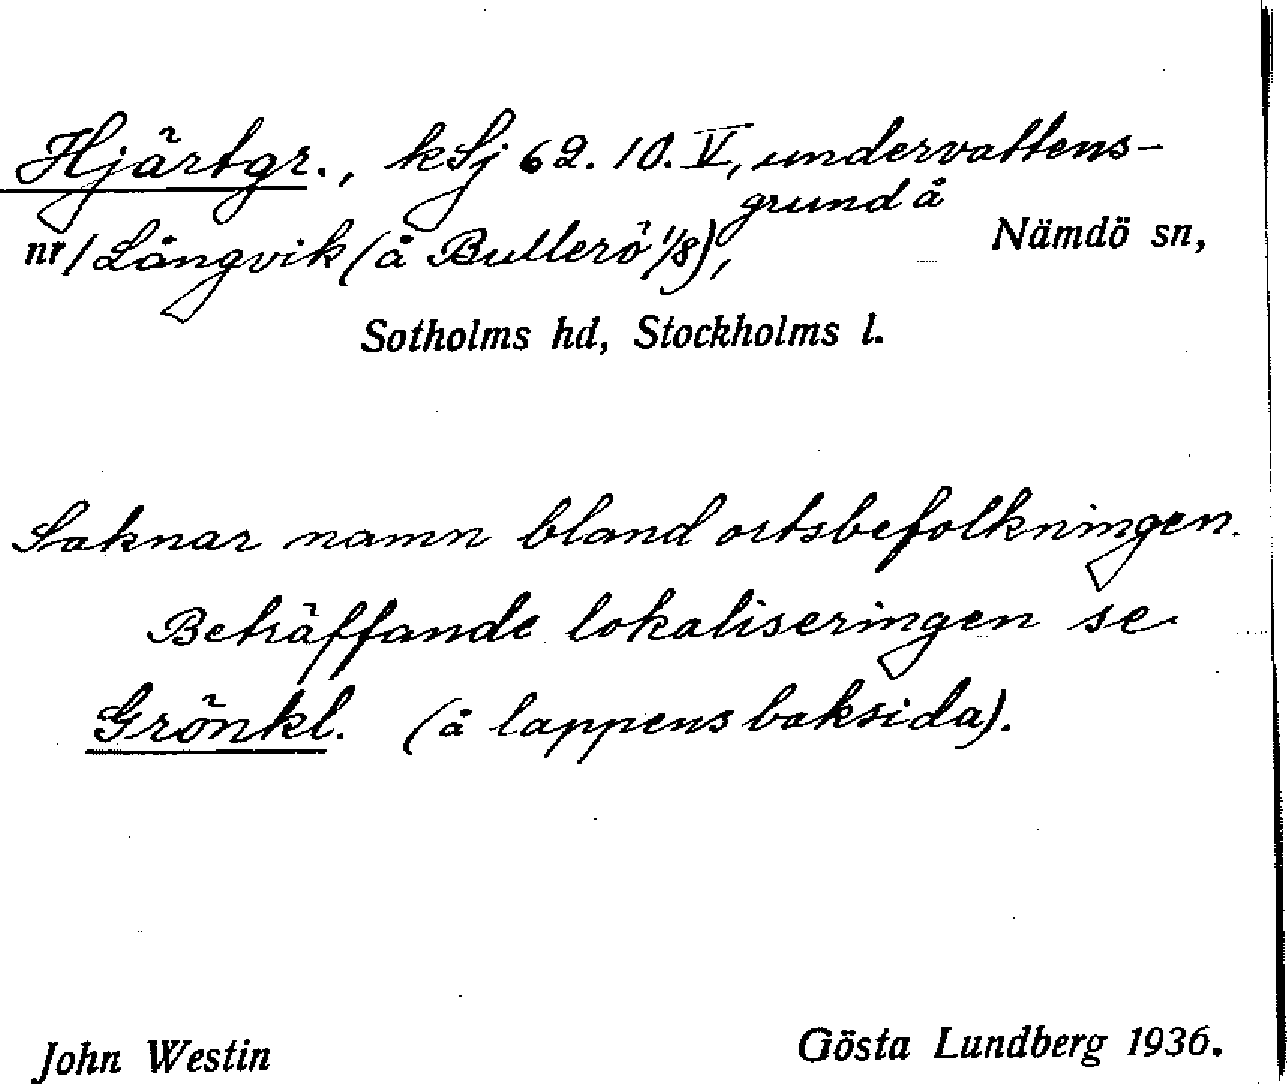 Hjärtgr., kSj 62. 10. V, undervattens-
grund å
nr 1 Långvik (å Bullerö 1/8), Nämdö sn,
Sotholms hd, Stockholms l.
Saknar namn bland ortsbefolkningen.
Beträffande lokaliseringen se
Grönkl. (å lappens baksida).
John Westin Gösta Lundberg 1936.